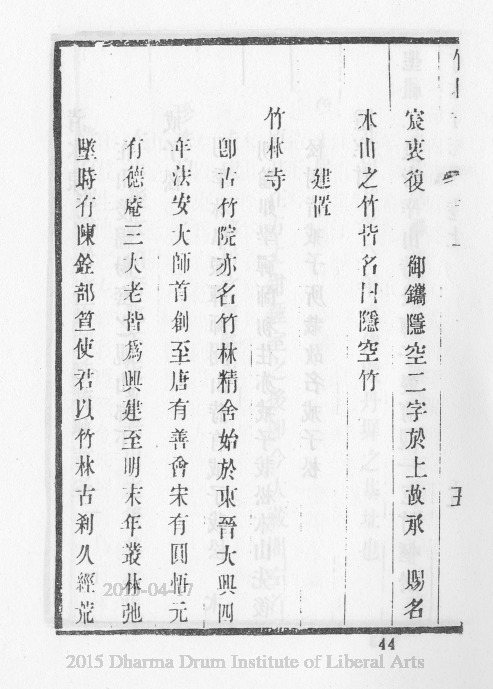 宸衷復 御鐫隱空二字於上故承 賜名
本山之竹皆名曰隱空竹
建置
竹林寺
卽古竹院亦名竹林精舍始於東晉大興四
年法安大師首創至唐有善會宋有圓悟元
有德庵三大老皆爲興建至明末年叢林弛
墜時有陳銓部筥使君以竹林古刹久經荒
五
44
2015-04-17
2015 Dharma Drum Institute of Liberal Arts